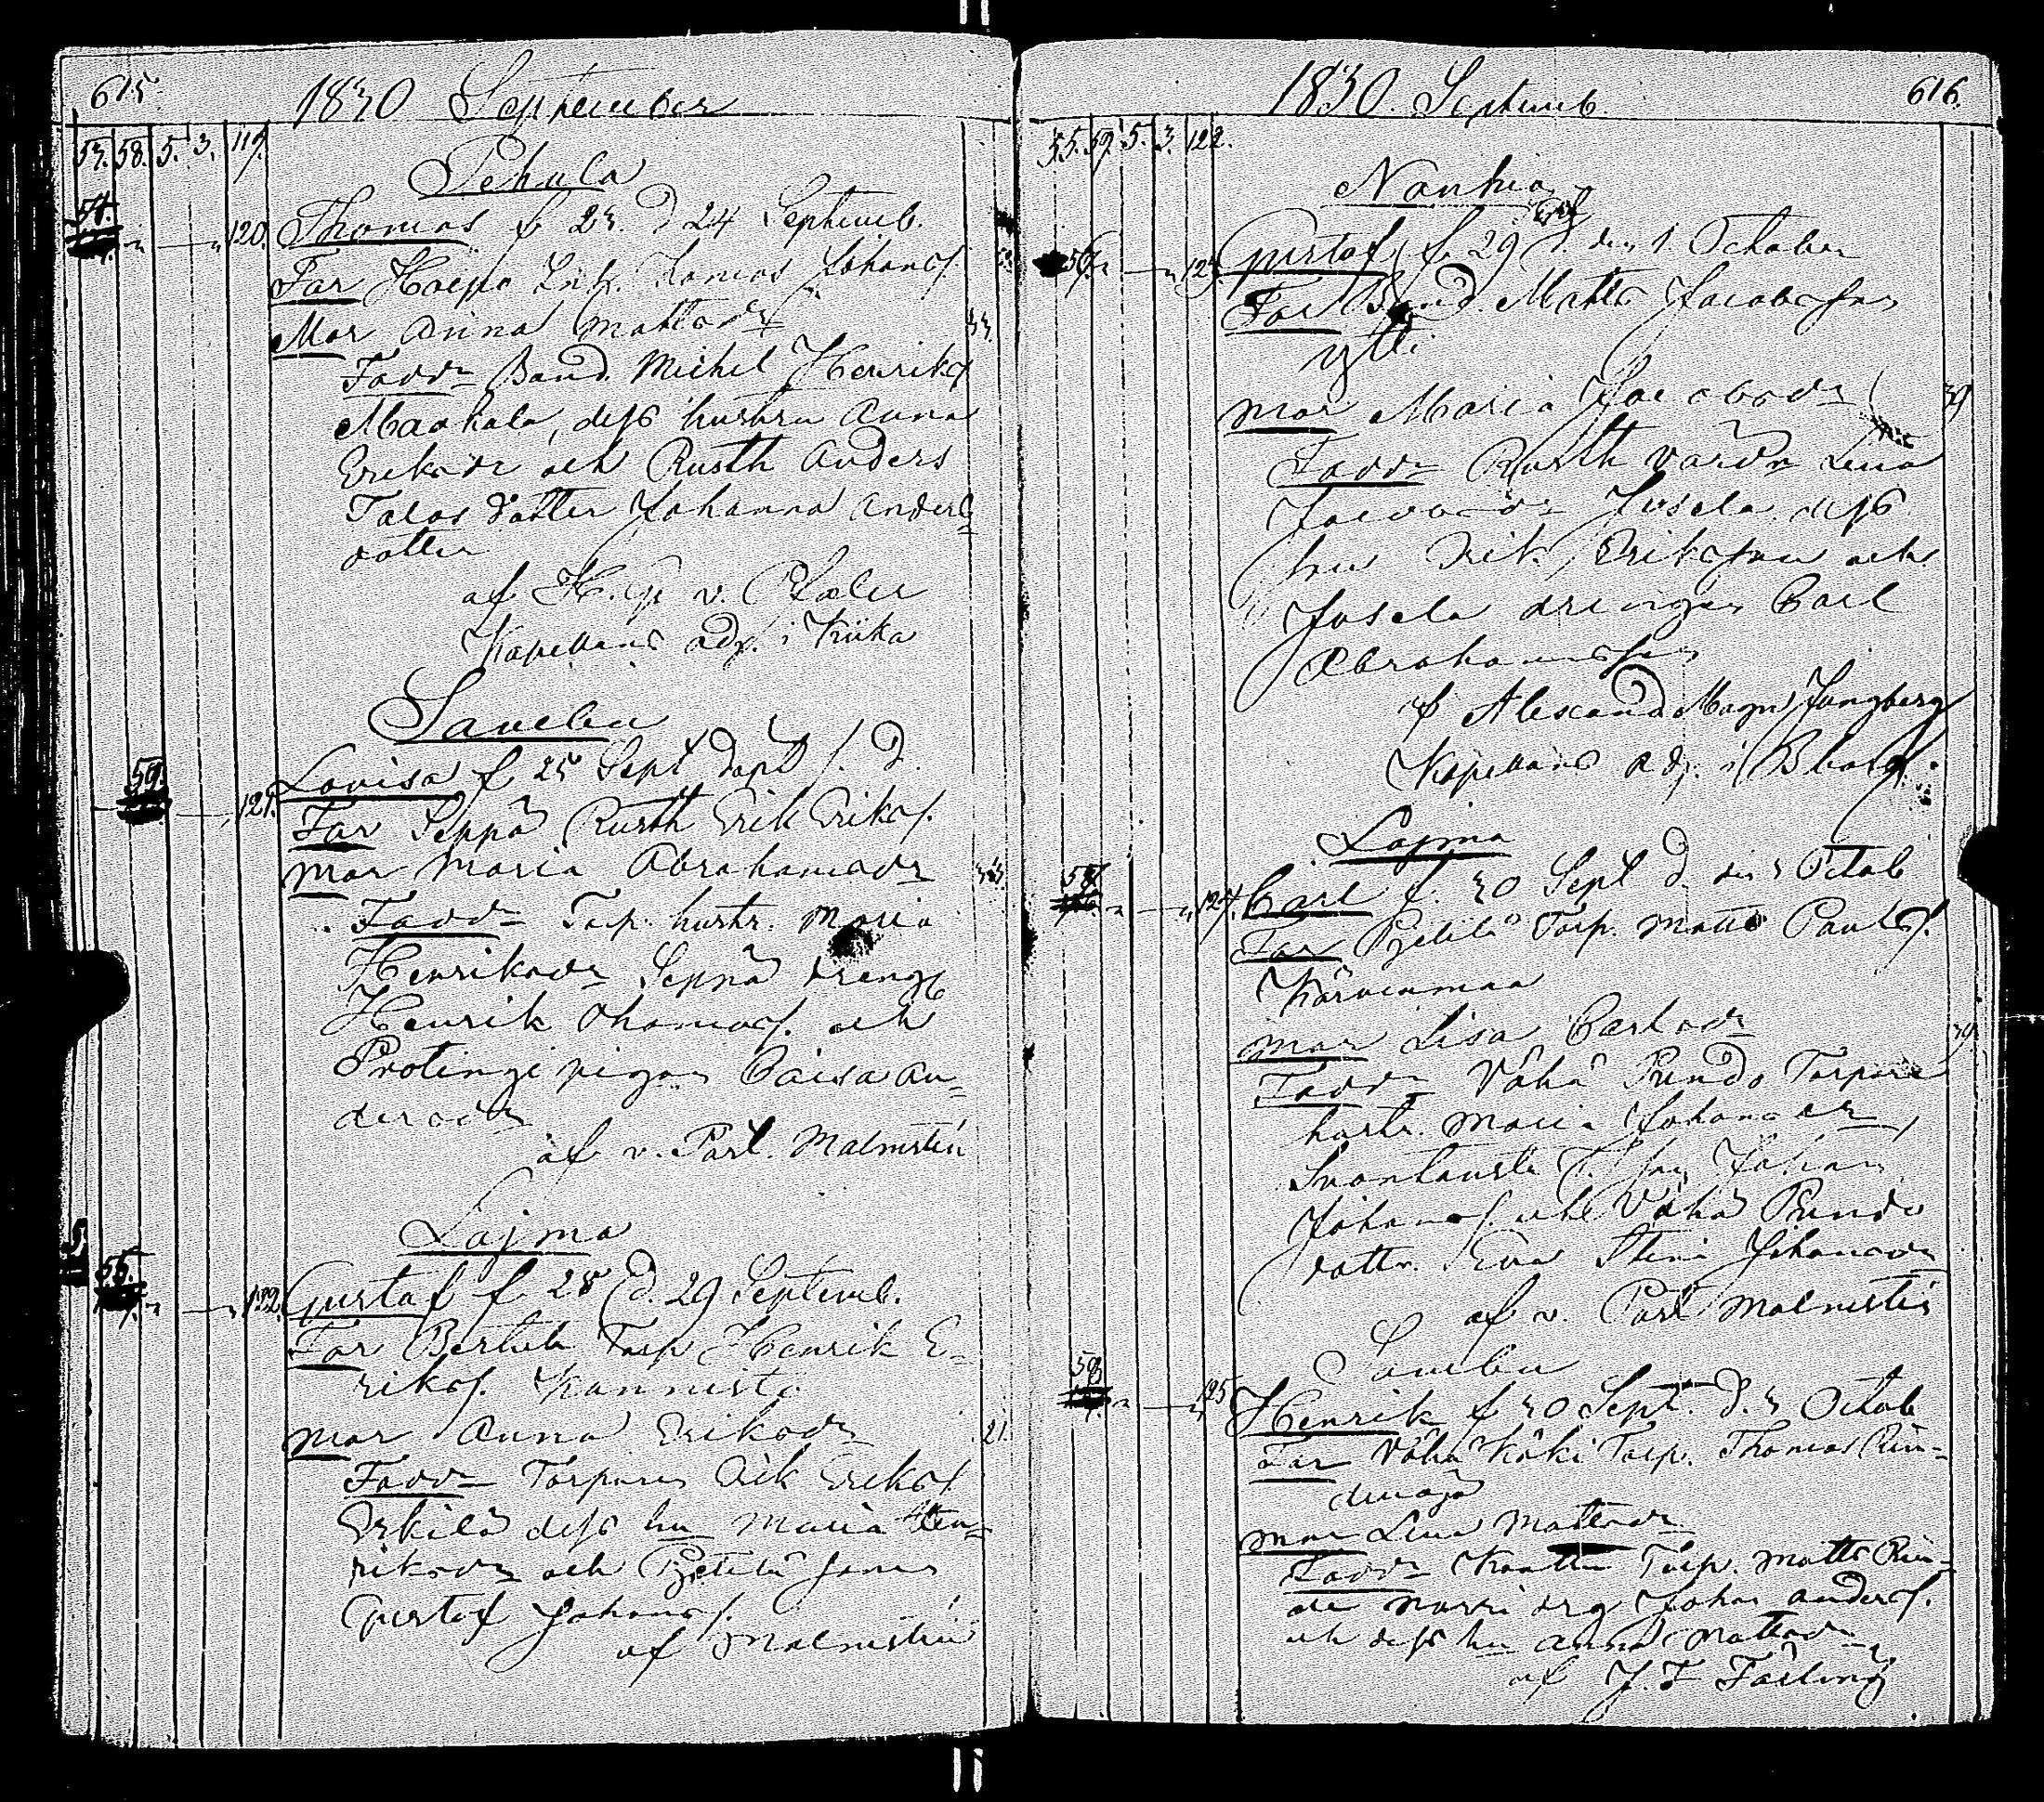 615
1830 September
57. 58. 5. 3. 119.
Pehula
54.
120. Thomas f 23. d 24 Septemb.
Far Inh. Tomas Johanss.
Mor Anna Mattsdr
33.
Faddr Bond. Michel Henriks
Maskala, dess hustru Anna
Eriksdr och Rusth Anders
Talas dotter Johanna Anders
dotter
af H. G. v.
Kapellans adj. i Kiika
Sauelu
59.
121. Lovisa f 25 Sept döpt s. d.
Far Seppä Rusth Erik Eriks.
Mor Maria Abrahamsdr
33.
Faddr Torp. hustr. Maria
Henriksdr Seppä dreng
Henrik Thomass. och
Protingi pigan Caisa An-
dersdr
af v. Past. Malmstén
Lajma
55.
122. Gustaf f 28 d. 29 Septemb.
Far Torp Henrik E-
riks. Kannisto
Mor Anna Eriksdr
21.
Faddr Torparen Erik Eriks.
Erkilä dess hu Maria Hen-
riksdr och sonen
Gustaf Johans.
af Malmstén
1830. Septemb.
616.
55. 59. 5. 3. 122.
Nanhia
123. Gustaf f. 29 d. den 1. October
Far Bond. Matts Jacobsson
ytti
Mor Maria Jacobsdr
39
Faddr Rusth värdn Lena
Jacobsdr Jusela dess
son Erik Eriksson och
Jusela drengen Carl
Abrahamsson
f Alexand. Magn. Ljungberg
Kapellans adj. i
Lajma
58.
124. Carl f. 30 Sept d. den 3 Octob
Far Torp. Matts Pauls.
Kärvenmaa
Mor Lisa Carlsdr
39
Faddr Vähä Pundo Torpare
hustr. Maria Johansdr,
son Johan
Johans. och Vähä Pundo
dottr. Eva Stina Johansdr
af v. Past Malmstén
Sauelu
58.
125. Henrik f 30 Sept. d. 3 Octob
Far Vähä Köki Torp. Thomas
Mor Lena Mattsdr
Faddr Torp. Matts
drg Johan Anders.
och dess hu Anna Mattsdr
af J. F. Färling